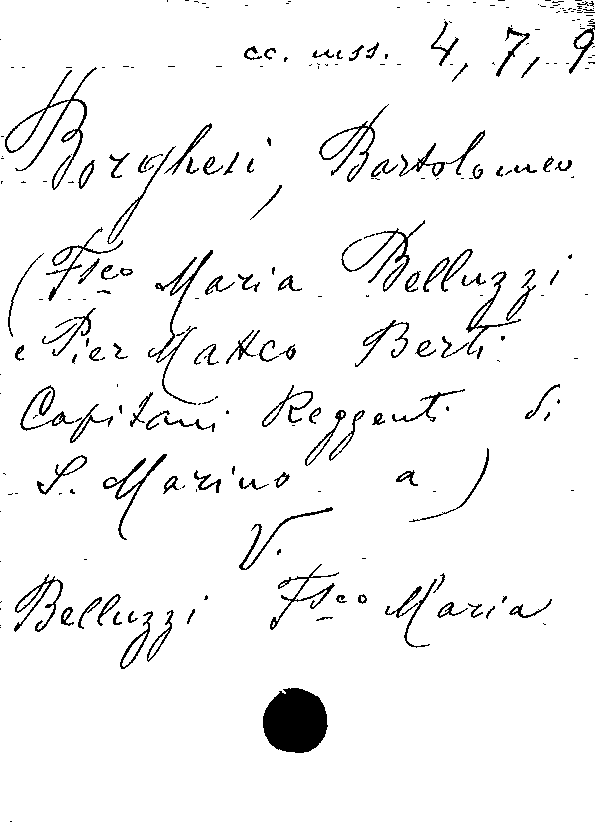 cc. mss. 4, 7, 9
Borghesi, Bartolomeo
(Fsco Maria Belluzzi
e Pier Matteo Berti
Capitani Reggenti di
S. Marino a)
V.
Belluzzi Fsco Maria